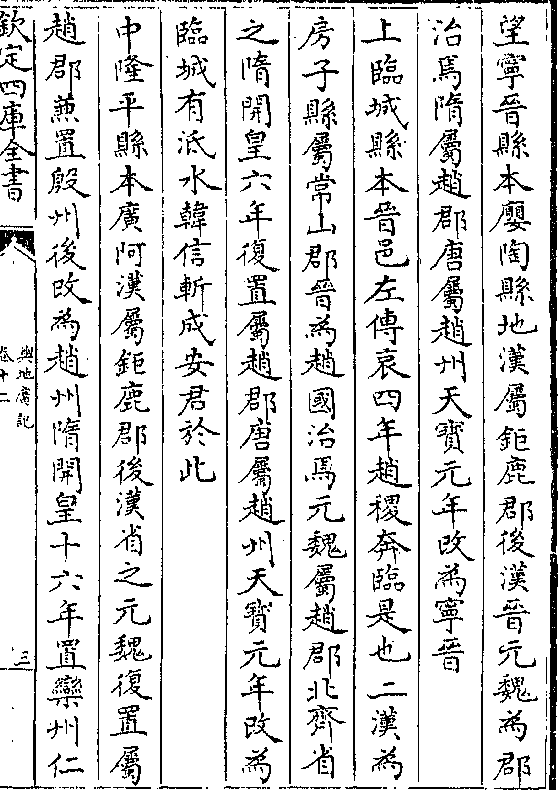 望寧晉縣本廮陶縣地漢屬鉅鹿郡後漢晉元魏為郡
治焉隋屬趙郡唐屬趙州天寶元年改為寧晉
上臨城縣本晉邑左傳哀四年趙稷奔臨是也二漢為
房子縣屬常山郡晉為趙國治焉元魏屬趙郡北齊省
之隋開皇六年復置屬趙郡唐屬趙州天寶元年改為
臨城有泜水韓信斬成安君於此
中隆平縣本廣阿漢屬鉅鹿郡後漢省之元魏復置屬
趙郡兼置殷州後改為趙州隋開皇十六年置欒州仁
欽定四庫全書
輿地廣記
卷十二
三